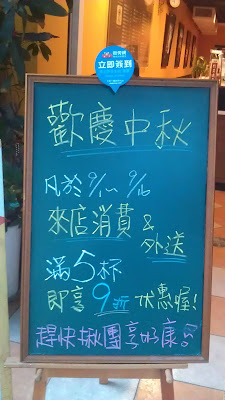 立即簽到
歡慶中秋
凡於9/1~9/16
來店消費&
外送
滿5杯
即享9折優惠喔!
趕快揪團享好康